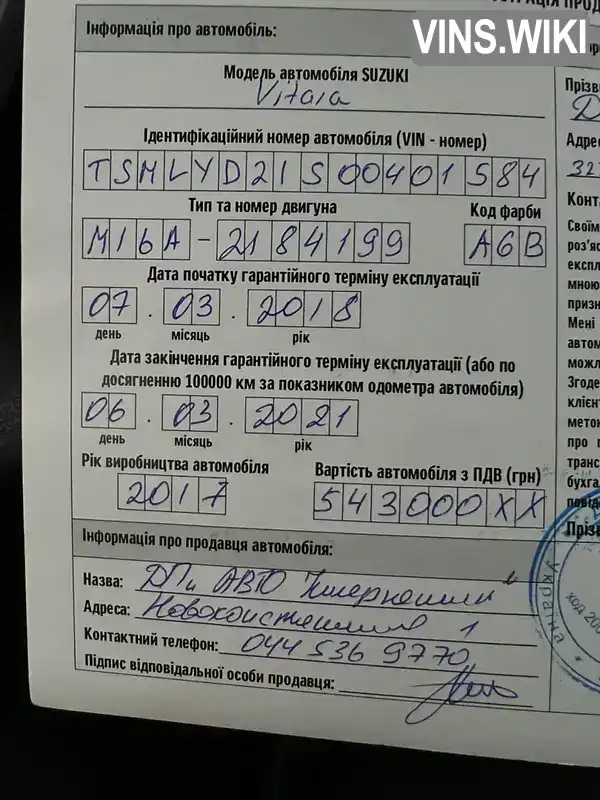 VINS.WIKI
Інформація про автомобіль:
Модель автомобіля SUZUKI
Vitara
Ідентифікаційний номер автомобіля (VIN - номер)
TSMLYD21S00401584
Тип та номер двигуна
Код фарби
M16A-2184199
A6B
Дата початку гарантійного терміну експлуатації
07.03.2018
день місяць рік
Дата закінчення гарантійного терміну експлуатації (або по
досягненню 100000 км за показником одометра автомобіля)
06.03.2021
день місяць рік
Рік виробництва автомобіля
Вартість автомобіля з ПДВ (грн)
2017
543000XX
Інформація про продавця автомобіля:
Назва: ДП АВТО
Адреса: 1
Контактний телефон: 044 536 9770
Підпис відповідальної особи продавця:
Прізв
Адрес
Конт
Своїм
роз'яс
експл
мною
призн
Мені
автом
можл
Згоде
клієнт
метою
про п
транс
бухга
повід
Прізв
україна
код 200